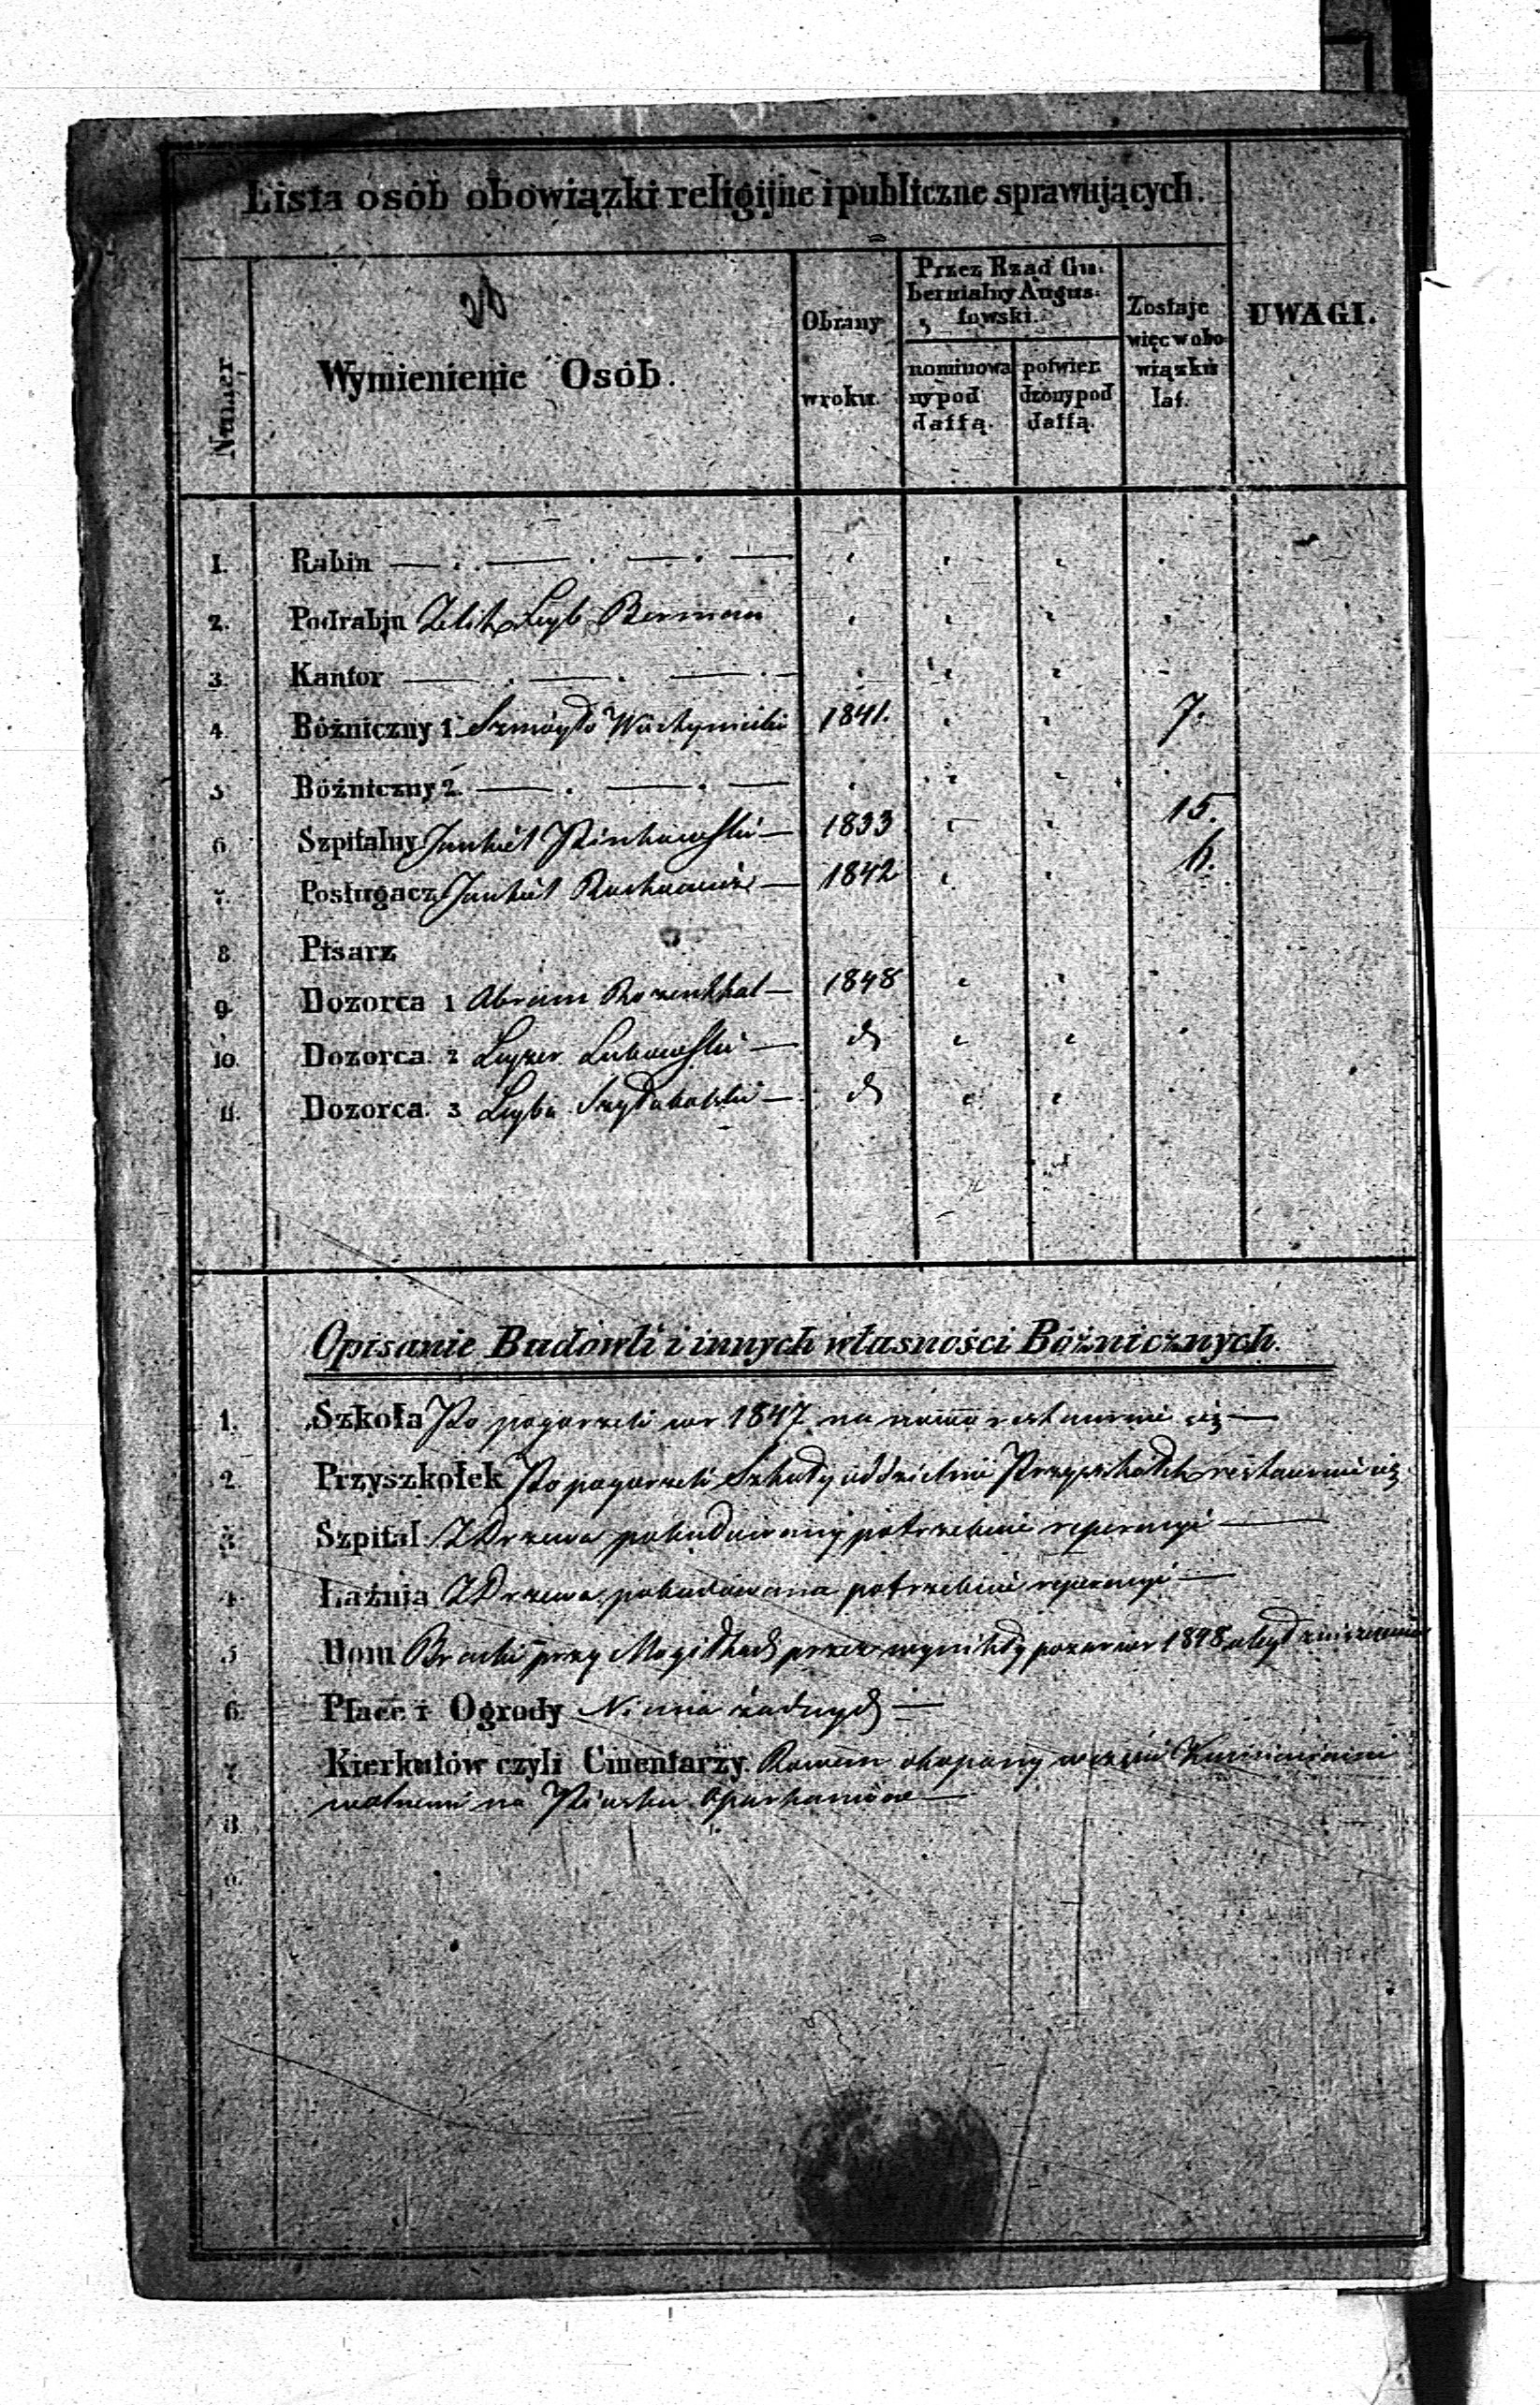 Lista osób obowiązki religijne i publiczne sprawujących.
Numer
Wymienienie Osób.
Obrany w roku.
Przez Rząd Gu-
bernialny Augus-
towski.
nominowa
ny pod
dattą.
potwier
dzony pod
dattą.
Zostaje
więc w obo-
wiązku
lat.
UWAGI.
1. Rabin
2. Podrabin Leyb Berman
3. Kantor
4. Bóżniczny 1 1841. 7.
5 Bóżniczny 2.
6 Szpitalny Jankiel 1833 15.
7. Posługacz Jankiel 1842
8 Pisarz
9. Dozorca 1 Abram Rozenthal 1848
10. Dozorca. 2 Leyzer
11. Dozorca. 3 Leyba
Opisanie Budowli i innych własności Bóżnicznych.
1. Szkoła Po pogorzeli w r 1847 na nowo restauruie się
2. Przyszkołek Po pogorzeli Szkoły oddzielnie Przyszkołek restauruie się
3. Szpital Z Drzewa pobudowany potrzebuie reperacyi
4. Łaźnia Z Drzewa pobudowana potrzebuie reperacyi
5 Dom Bracki przy Mogiłkach przez wynikły pożar w r 1848 uległ zniszczeniu
6. Place i Ogrody Niema żadnych
7 Kierkutów czyli Cmentarzy. Rowem okopany w części Kamieniami
na Piasku oparkanione
8.
9.